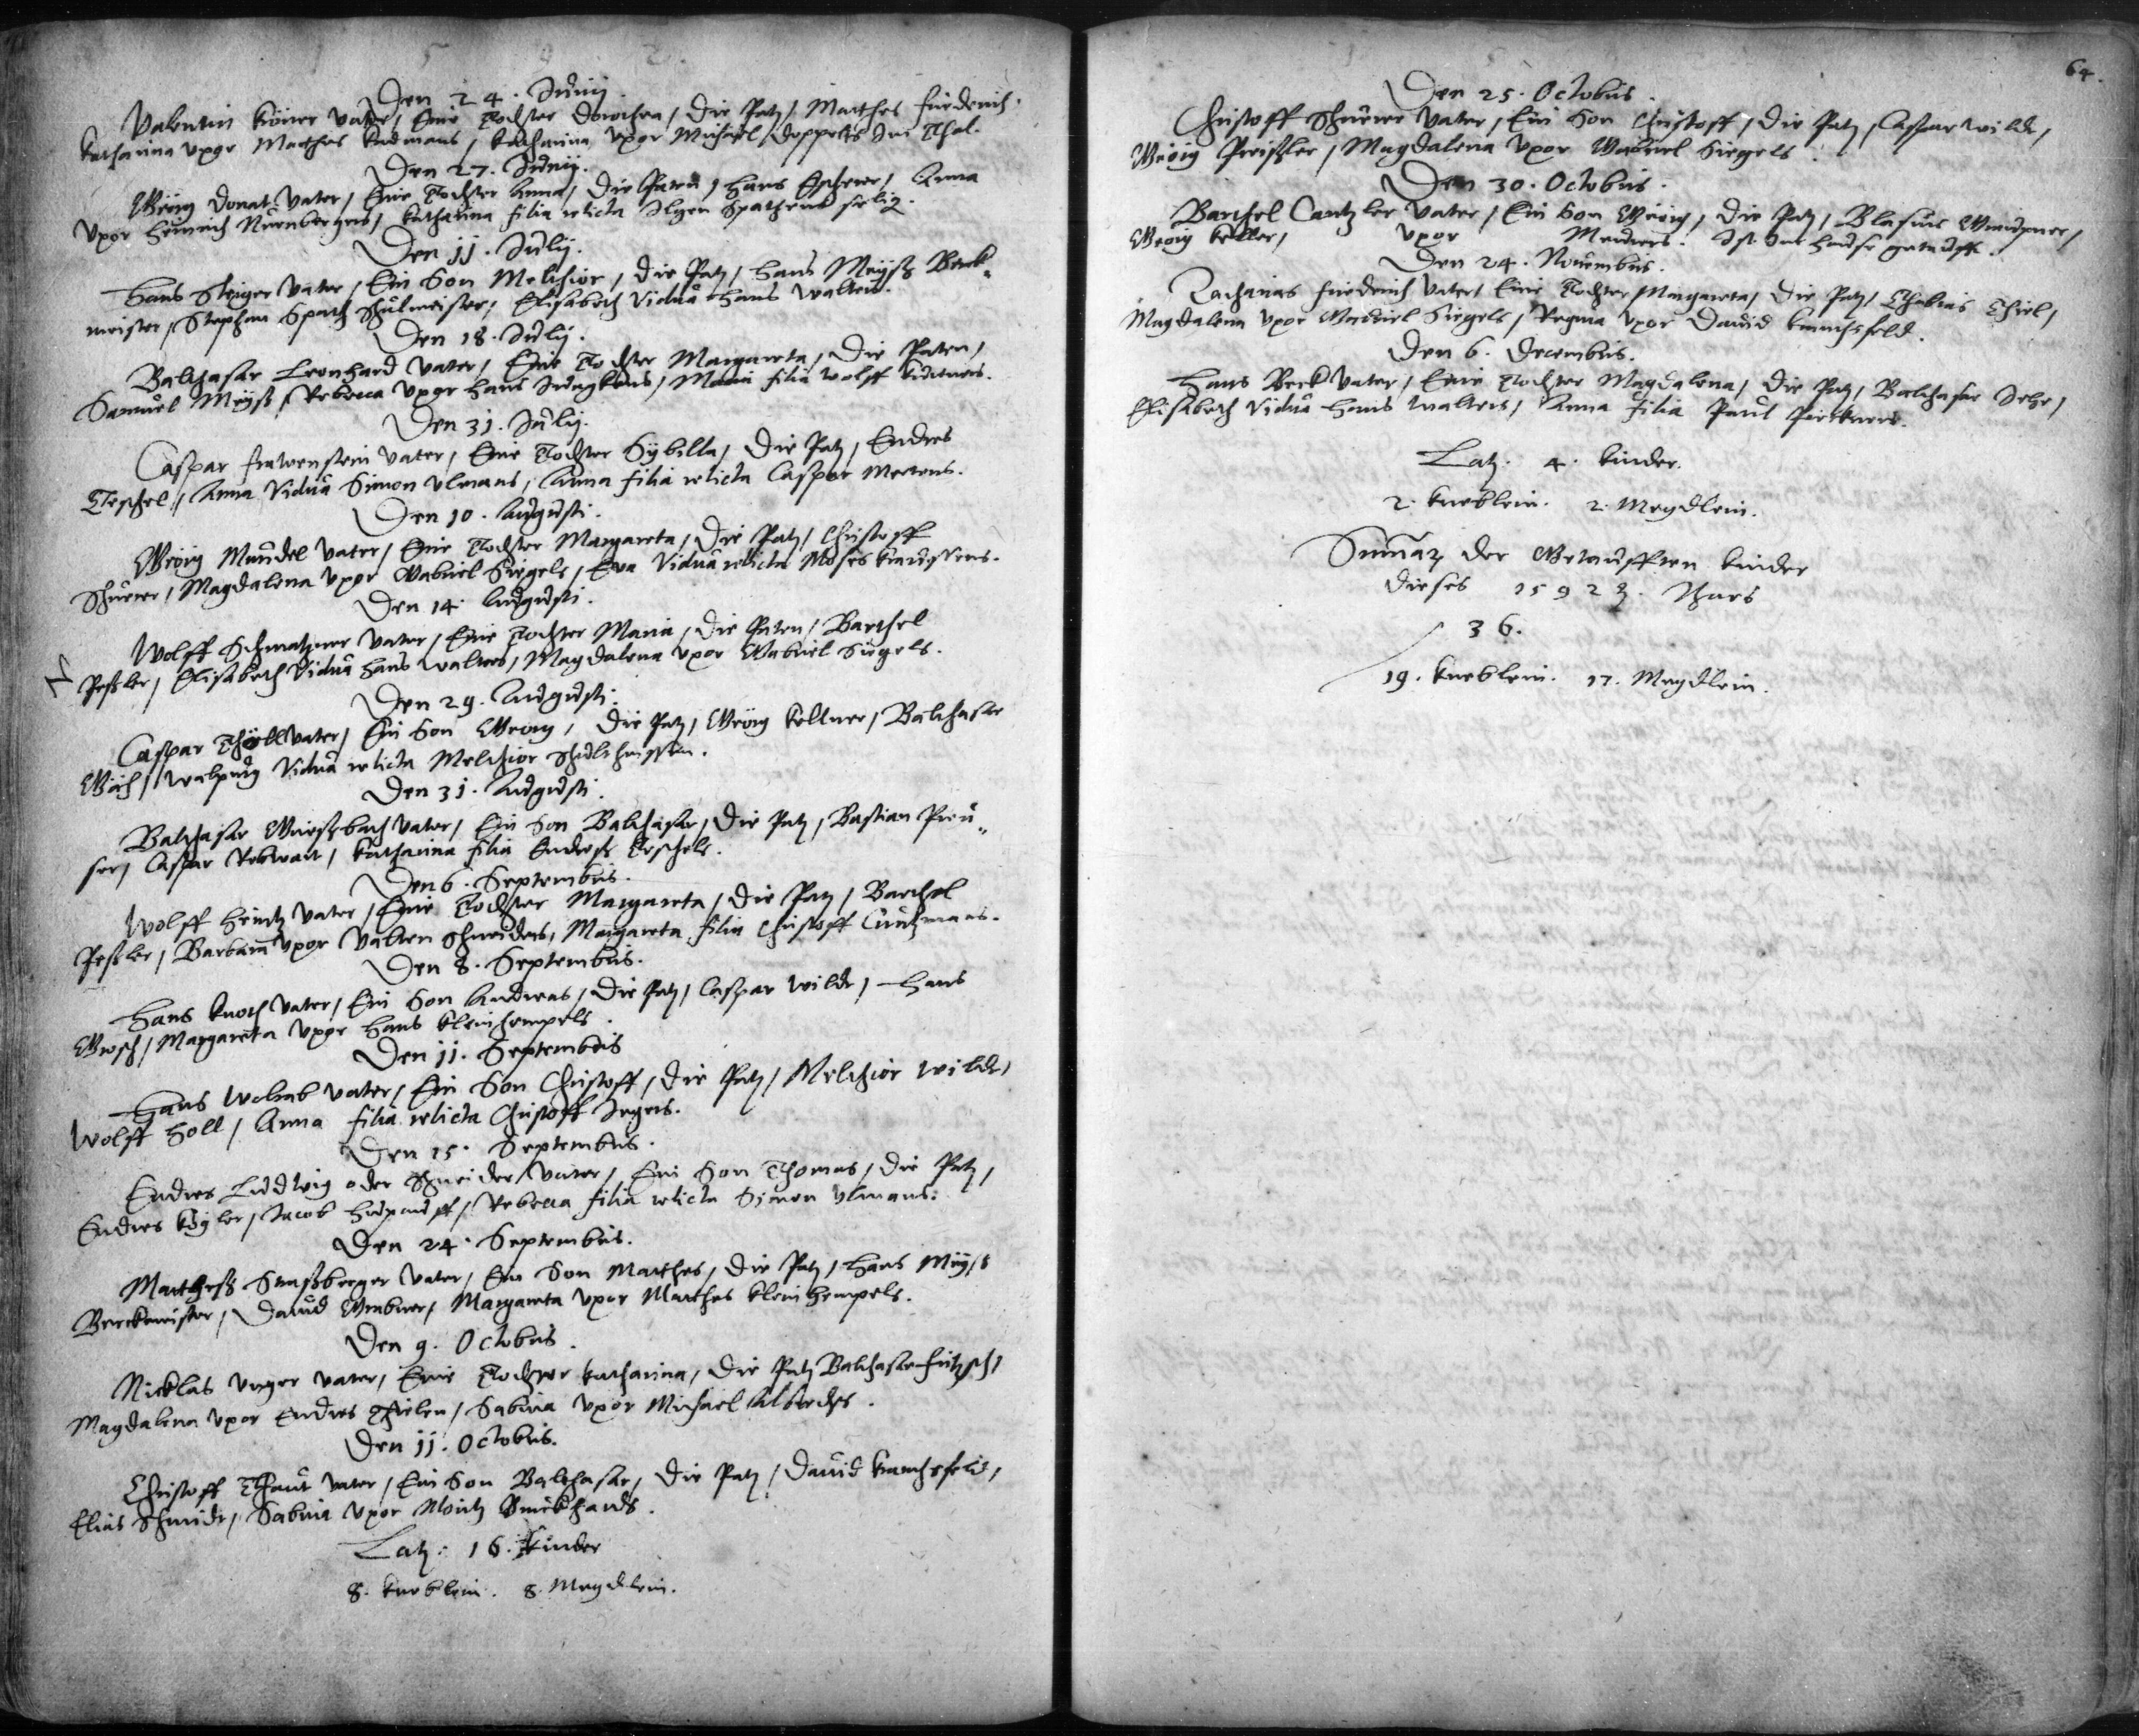 Den 24. Junij.
Valentin Körner Vater, Eine Tochter Dorothea, Die Patē, Matthes Friederich,
Katharina Vxor Matthes, Katharina Vxor Michael im Thal.
Den 27. Junij.
Georg Donat Vater, Eine Tochter Anna, Die Paten, Hans Escherer, Anna
Vxor Heinrich Nürnbergers, Katharina filia relicta Ilgen Spatherns selig.
Den 11. Julij.
Hans Steiger Vater, Ein Son Melchior, Die Patē, Hans Meyß Berck-
meister, Stephan Spath Schulmeister, Elisabeth Vidua Hans Walters.
Den 18. Julij.
Balthasar Leonhard Vater, Eine Tochter Margareta, Die Paten,
Samuel Meyß, Rebecca Vxor Hans, Maria filia Wolff
Den 31. Julij.
Caspar Frawenstein Vater, Eine Tochter Sybilla, Die Patē, Endres
Teschel, Anna Vidua Simon Vlmans, Anna filia relicta Caspar Mertens.
Den 10. Augusti.
Georg Mandel Vater, Eine Tochter Margareta, Die Patē, Christoff
Scheurer, Magdalena Vxor Gabriel Siegels, Eva Vidua relicta Moses
Den 14. Augusti.
Wolff Schmatzner Vater, Eine Tochter Maria, Die Paten, Barthel
Peßler, Elisabeth Vidua Hans Walters, Magdalena Vxor Gabriel Siegels.
Den 29. Augusti.
Caspar Vater, Ein Son Georg, Die Patē, Georg Kellner, Balthasar
Walpurg Vidua relicta Melchior
Den 31. Augusti.
Balthasar Vater, Ein Son Balthasar, Die Patē, Bastian Preu-
ser, Caspar, Katharina filia Endreß Teschels.
Den 6. Septembris.
Wolff Heintz Vater, Eine Tochter Margareta, Die Patē, Barthel
Peßler, Barbara Vxor Valten Schneiders, Margareta filia Christoff Cuntzmans.
Den 8. Septembris.
Hans Knoth Vater, Ein Son Andreas, Die Patē, Caspar Wilde, Hans
Margareta Vxor Hans Kleinhempels.
Den 11. Septembris
Hans Vater, Ein Son Christoff, Die Patē, Melchior Wilde,
Wolff Holl, Anna filia relicta Christoff Jegers.
Den 15. Septembris.
Endres Ludwig oder Schneider Vater, Ein Son Thomas, Die Patē,
Endres Kögler, Jacob, Rebecca filia relicta Simon Vlmans.
Den 24. Septembris.
Mattheß Straßberger Vater, Ein Son Matthes, Die Patē, Hans Meyß
Berckmeister, Dauid Grebner, Margareta Vxor Matthes Kleinhempels.
Den 9. Octobris.
Nicklas Vnger Vater, Eine Tochter Katharina, Die Patē Balthasar Fritzsch,
Magdalena Vxor Endres Thielen, Sabina Vxor Michael Albrechts.
Den 11. Octobris.
Christoff Thaut Vater, Ein Son Balthasar, Die Patē, Dauid
Elias Schmidt, Sabina Vxor Moritz Burckhards.
Latē. 16. Kinder
8. Kneblein. 8. Megdlein.
64.
Den 25. Octobris.
Christoff Scheurer Vater, Ein Son Christoff, Die Patē, Caspar Wilde,
Georg Preißler, Magdalena Vxor Gabriel Siegels.
Den 30. Octobris.
Barthel Cantzler Vater, Ein Son Georg, Die Patē, Blasius
Georg Keller, Vxor. Ist Im Hause getaufft.
Den 24. Nouembris.
Zacharias Friederich Vater, Eine Tochter Margareta, Die Patē, Thobias Thiel,
Magdalena Vxor Gabriel Siegels, Regina Vxor Dauid
Den 6. Decembris.
Hans Beck Vater, Eine Tochter Magdalena, Die Patē, Balthasar
Elisabeth Vidua Hans Walters, Anna filia Paul
Latē. 4. Kinder.
2. Kneblein. 2. Megdlein.
Summa der Getaufften Kinder
dieses 1592 Jhars
36.
19. Kneblein. 17. Megdlein.